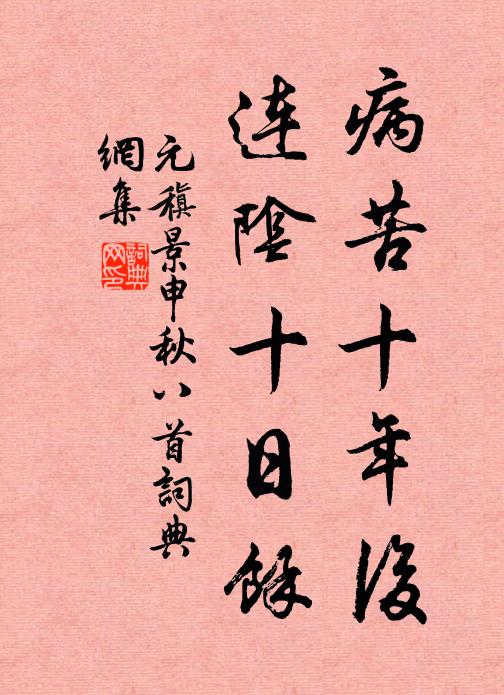 病苦十年後
連陰十日餘
元稹景申秋八首詞典
網集
詞典網印